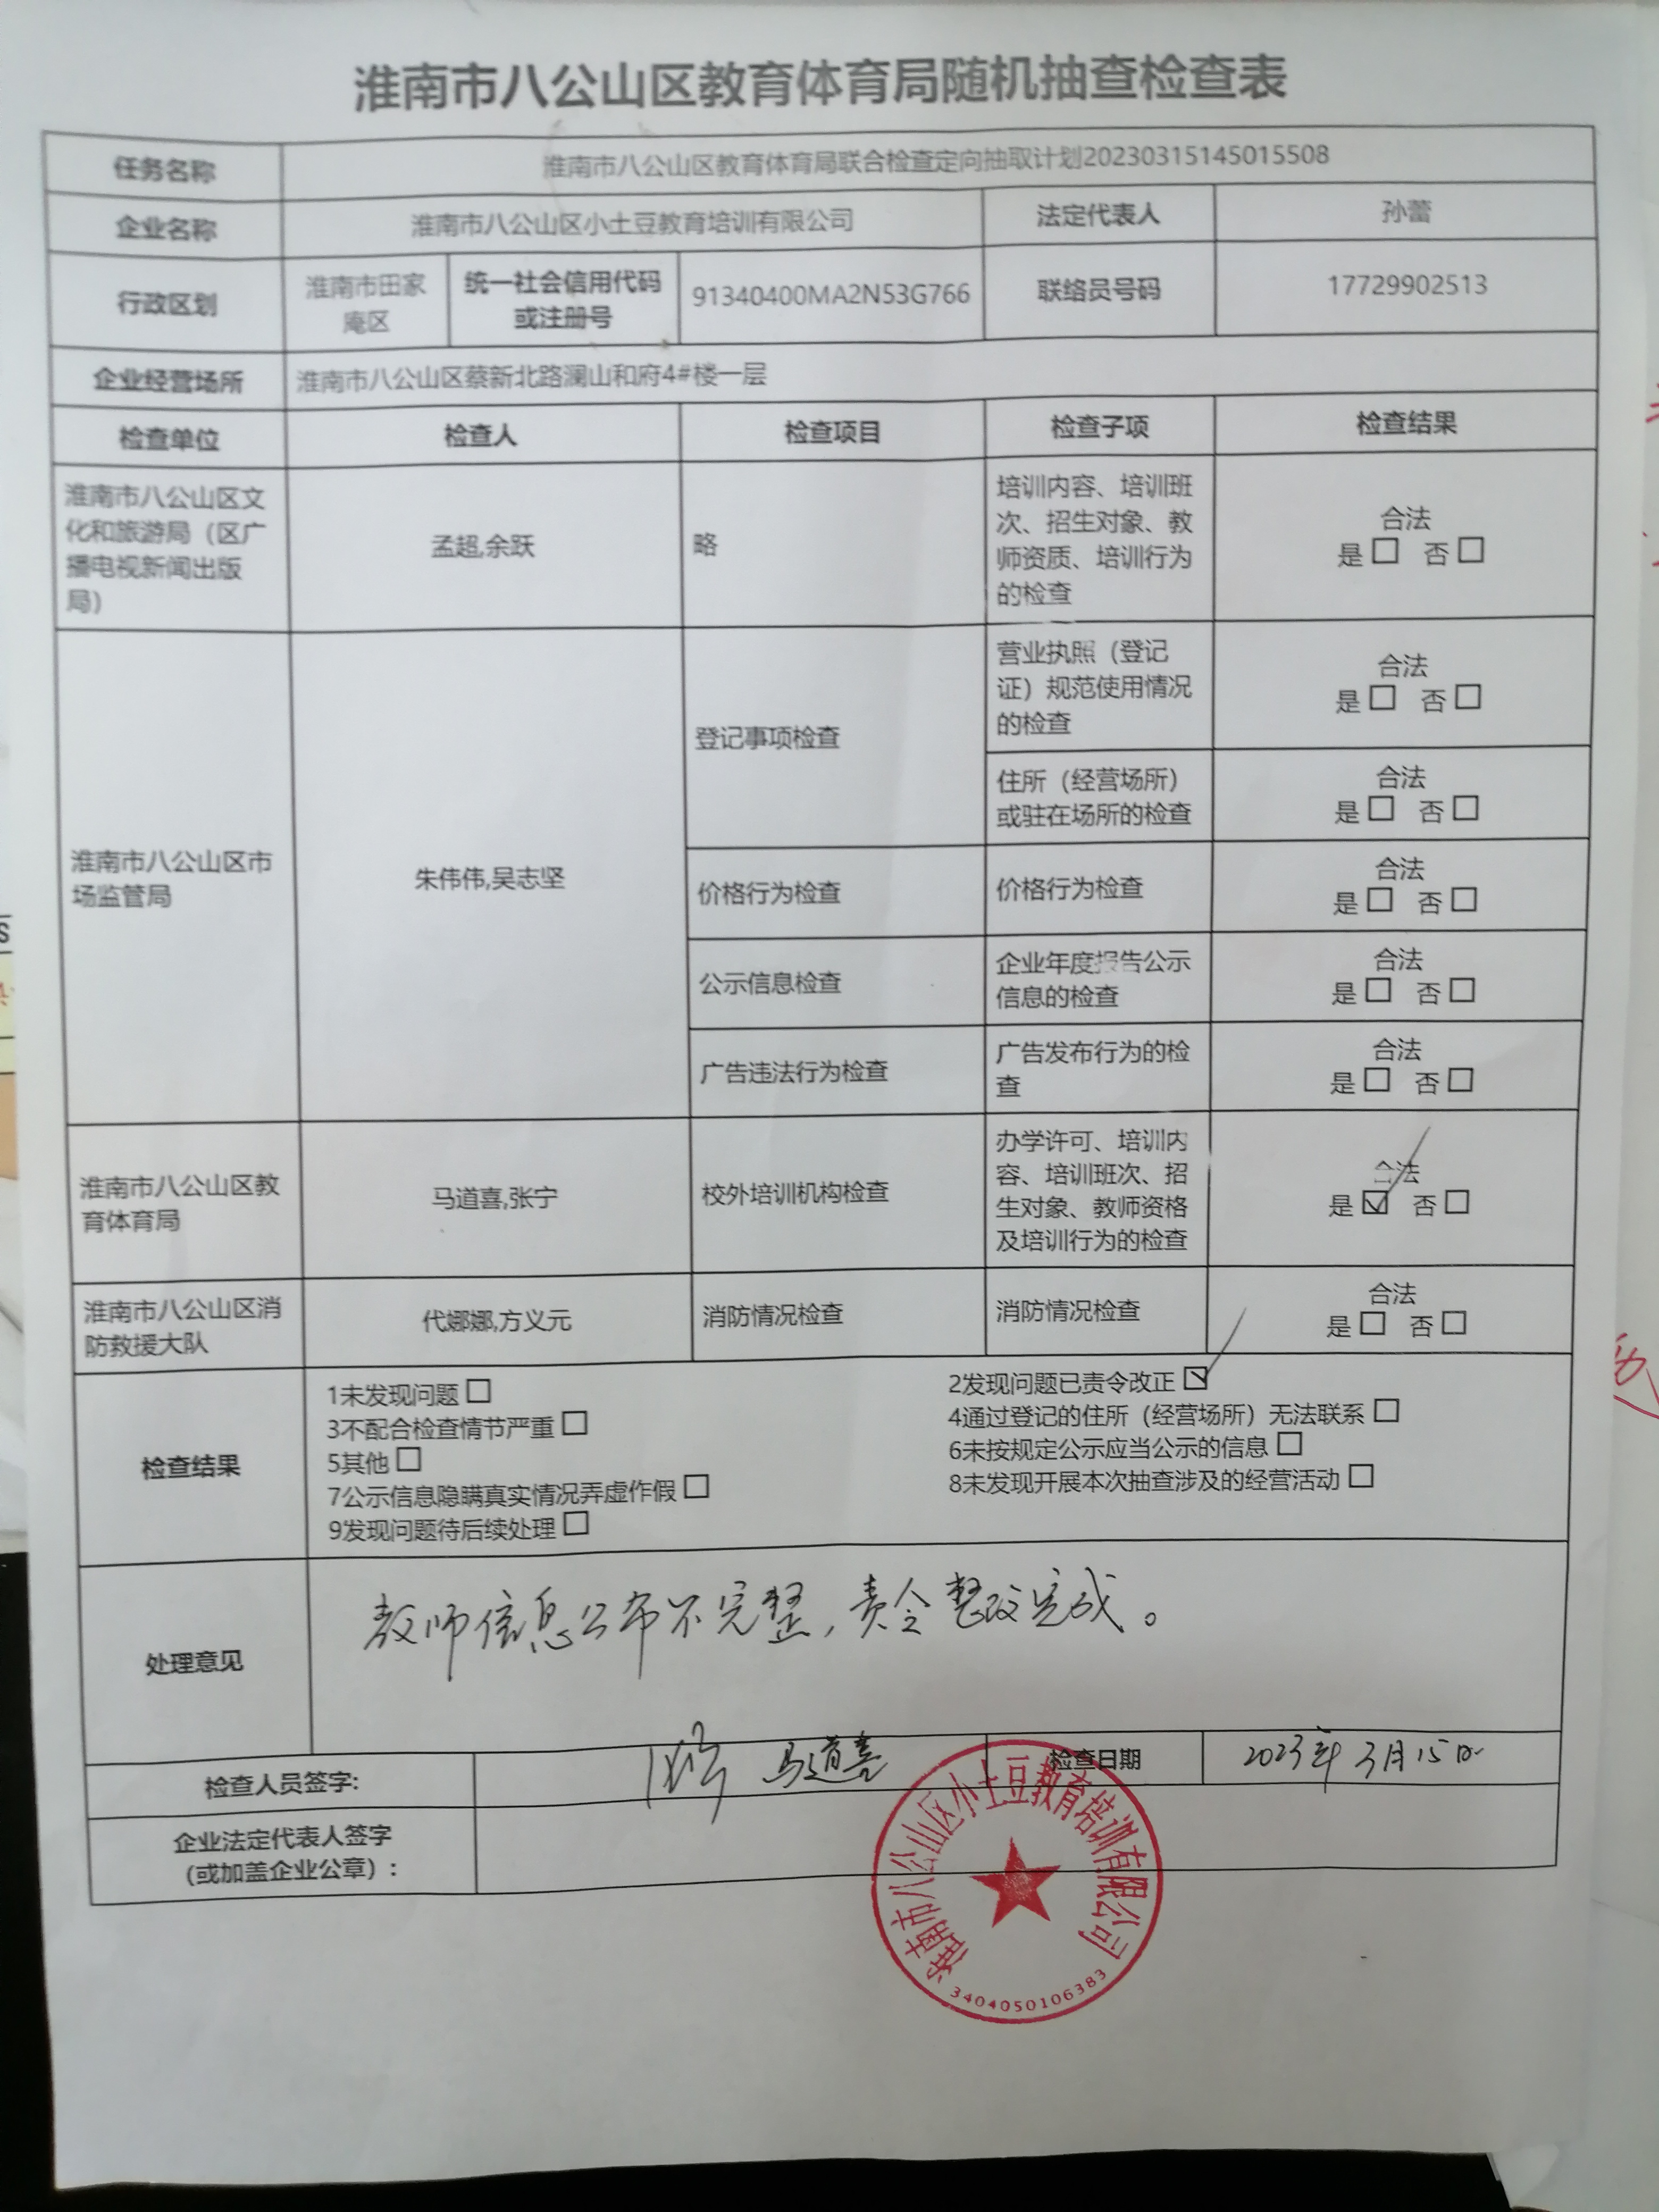 淮南市八公山区教育体育局随机抽查检查表
任务名称 淮南市八公山区教育体育局联合检查定向抽取计划20230315145015508
企业名称 淮南市八公山区小土豆教育培训有限公司 法定代表人 孙蕾
行政区划 淮南市田家 庵区 统一社会信用代码 或注册号 91340400MA2N53G766 联络员号码 17729902513
企业经营场所 淮南市八公山区蔡新北路澜山和府4#楼一层
检查单位 检查人 检查项目 检查子项 检查结果
淮南市八公山区文
化和旅游局（区广
播电视新闻出版
局）
孟超,余跃
略
培训内容、培训班
次、招生对象、教
师资质、培训行为
的检查
合法
是☐ 否☐
淮南市八公山区市
场监管局
朱伟伟,吴志坚
登记事项检查
营业执照（登记
证）规范使用情况
的检查
合法
是☐ 否☐
住所（经营场所）
或驻在场所的检查
合法
是☐ 否☐
价格行为检查
价格行为检查
合法
是☐ 否☐
公示信息检查
企业年度报告公示
信息的检查
合法
是☐ 否☐
广告违法行为检查
广告发布行为的检
查
合法
是☐ 否☐
淮南市八公山区教
育体育局
马道喜,张宁
校外培训机构检查
办学许可、培训内
容、培训班次、招
生对象、教师资格
及培训行为的检查
合法
是☑ 否☐
淮南市八公山区消
防救援大队
代娜娜,方义元
消防情况检查
消防情况检查
合法
是☐ 否☐
检查结果
1未发现问题☐ 2发现问题已责令改正☑
3不配合检查情节严重☐ 4通过登记的住所（经营场所）无法联系☐
5其他☐ 6未按规定公示应当公示的信息☐
7公示信息隐瞒真实情况弄虚作假☐ 8未发现开展本次抽查涉及的经营活动☐
9发现问题待后续处理☐
处理意见
教师信息公布不完整,责令整改完成。
检查人员签字: 马道喜 检查日期 2023年3月15日
企业法定代表人签字
（或加盖企业公章）:
淮南市八公山区小土豆教育培训有限公司
3404050106383